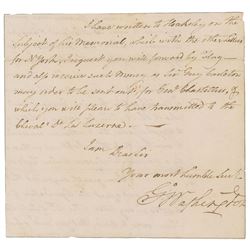 I have written to Hoaksley on the
Subject of his Memorial, which with the other Letters
for N. York, I request you will forward by Flag —
and also receive such Money as Sir Guy Carleton
may order to be sent out, for Genl
which you will please to have transmitted to the
Cheval. de la Luzerne.
I am Dear Sir
Your most humble Servt
Go Washington